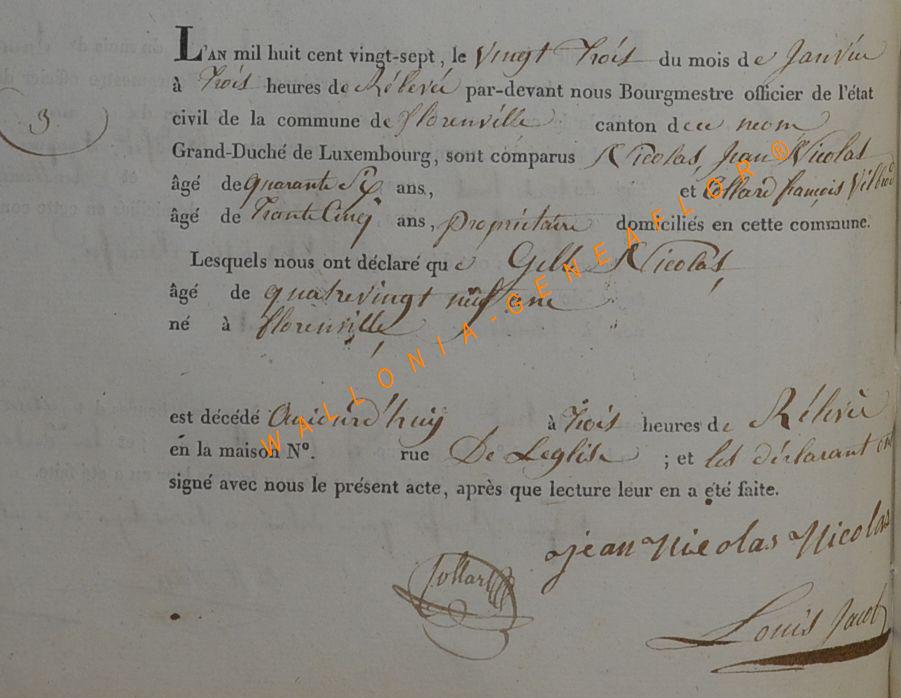 L'AN mil huit cent vingt-sept, le vingt trois du mois de Janvier
à trois heures de Rélevée par-devant nous Bourgmestre officier de l'état
3. civil de la commune de florenville canton de ce nom
Grand-Duché de Luxembourg, sont comparus Nicolas, Jean Nicolas
âgé de quarante Six ans, et Collard françois
âgé de Trante Cinq ans, propriétaire domiciliés en cette commune.
Lesquels nous ont déclaré que Gille Nicolas,
âgé de quatrevingt neuf ans
né à florenville,
est décédé Aujourd'huy à trois heures de Rélevée
en la maison N°. rue De Leglise ; et les déclarant ont
signé avec nous le présent acte, après que lecture leur en a été faite.
jean nicolas nicolas
Collard
Louis Jacob
WALLONIA-GENEAFLOR®